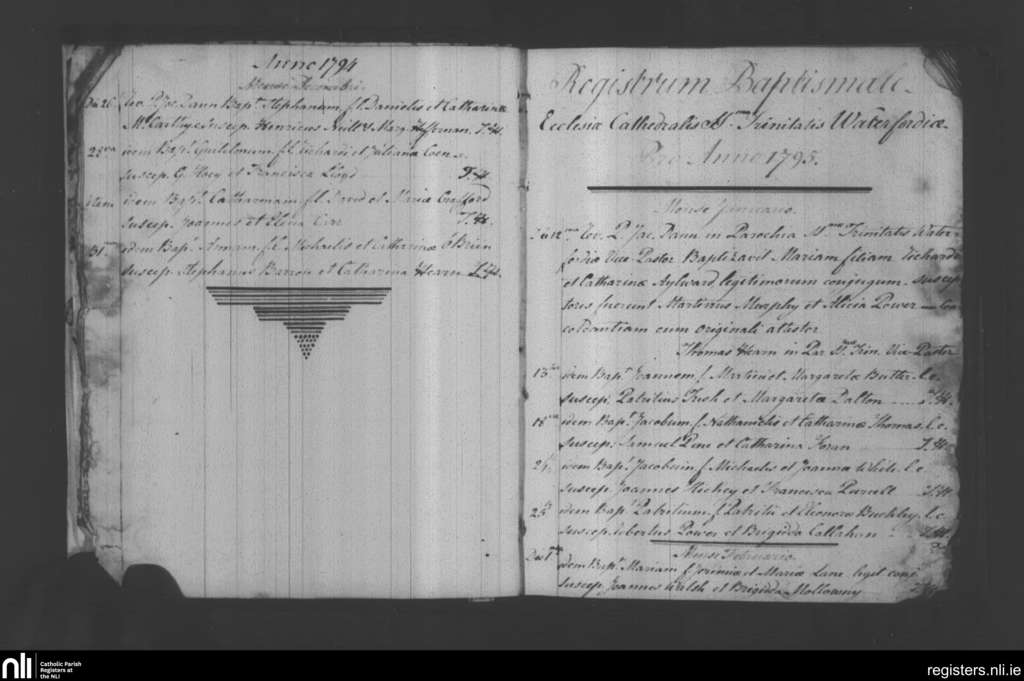 Anno 1794
Mense Decembri
Die 26 Rev. P. Jac. Dunn Bapt. Stephanum f. l. Danielis et Catharinæ
McCarthy suscep. Henricus Neill & Mary Heffernan T. H.
idem Bapt. Gulielmum f. l. Richardi et Julianæ Coen
suscep. G. Hoey et Francisca Lloyd T. H.
idem Bapt. Catharinam f. l. David et Mariæ Crafford
suscep. Joannes et Elena Carr T. H.
31 idem Bap. Annam f. l. Michaelis et Catharinæ O'Brien
suscep. Stephanus Barron et Catharina Hearn T. H.
Registrum Baptismale
Ecclesiæ Cathedralis Smæ Trinitatis Waterfordiæ
Pro Anno 1795.
Mense Januario.
Die 12 Rev. P. Jac. Dunn in Parochia Smæ Trinitatis Water-
fordiæ Vice Pastor Baptizavit Mariam filiam Richardi
et Catharinæ Aylward legitimorum conjugum. suscep
tores fuerunt Martinus Murphy et Alicia Power con
cordantiam cum originali attestor
Thomas Hearn in Par. Smæ Trin. Vice Pastor
13 idem Bapt. Joannem f. Martini et Margaretæ Butler l. c.
suscep. Patritius Irish et Margareta Dalton T. H.
18 idem Bapt. Jacobum f. Nathanielis et Catharinæ Thomas. l. c.
suscep. Samuel Pine et Catharina Foran T. H.
21 idem Bapt. Jacobum f. Michaelis et Joannæ White l. c.
suscep. Joannes Hickey et Francisca Purcell T. H.
25 idem Bapt. Patritium f. Patritii et Eleonoræ Buckley. l. c.
suscep. Robertus Power et Brigida Callahan T. H.
Mense Februario
Die 1 idem Bapt. Mariam f. Jeremiæ et Mariæ Lane legit. conj.
suscep. Joannes Walsh et Brigida Mollowny T. H.
nli
Catholic Parish
Registers at
the NLI
registers.nli.ie